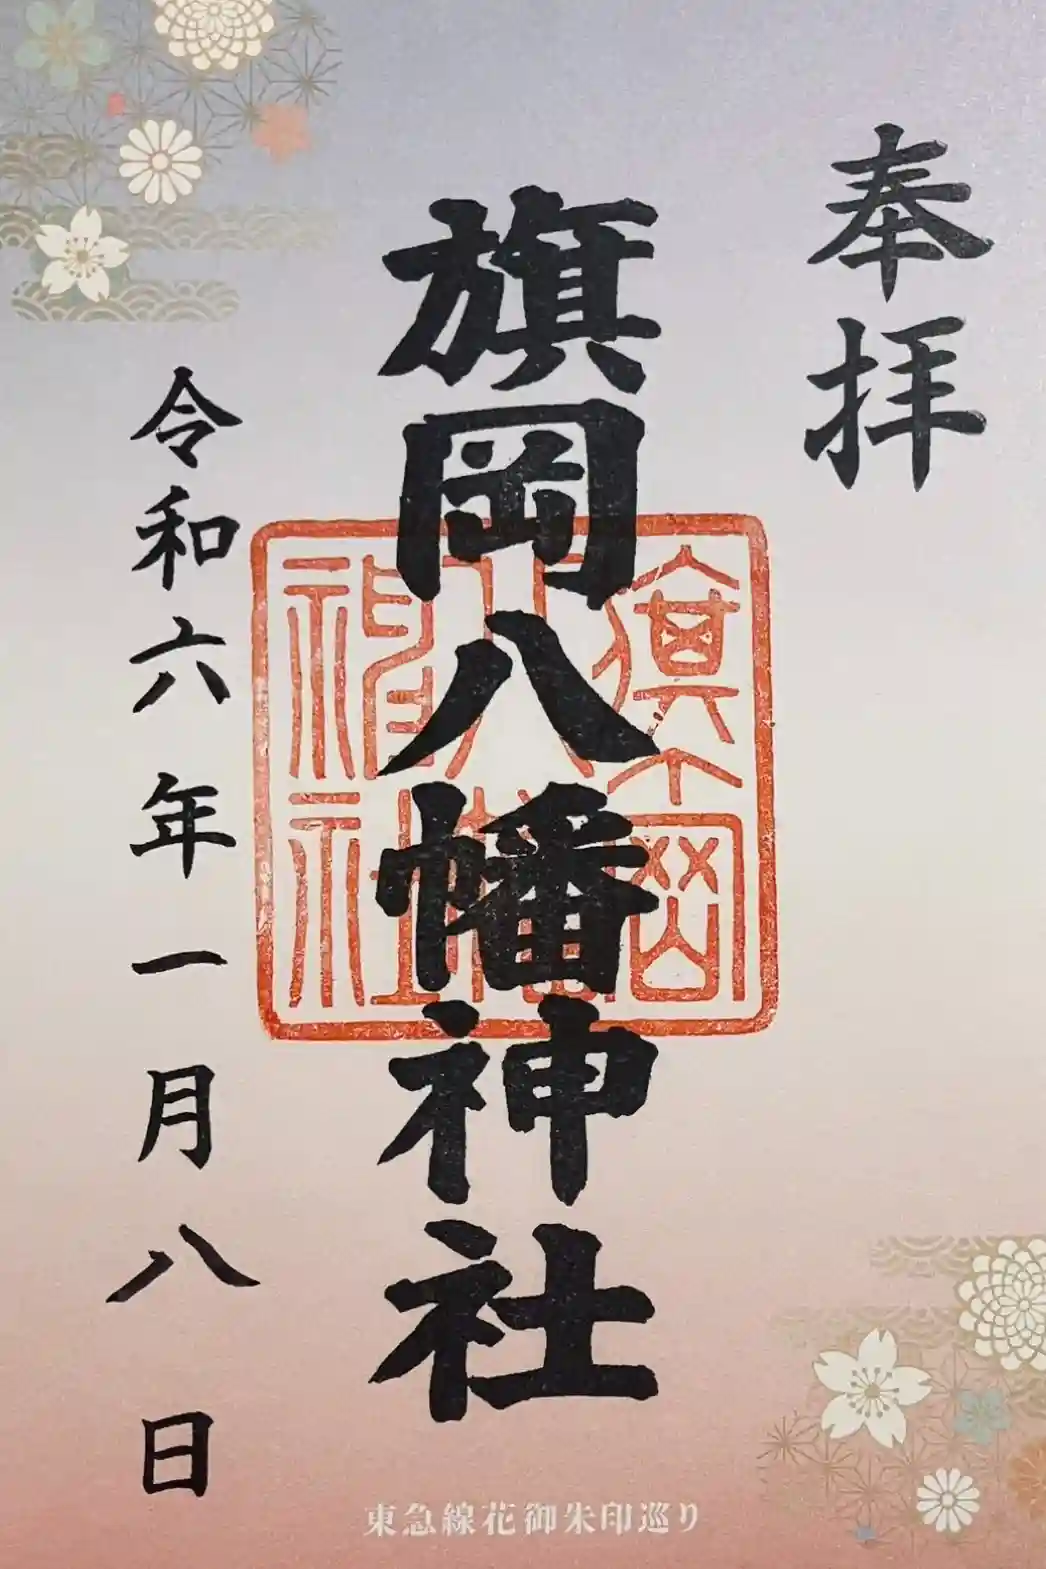 奉拝
旗岡八幡神社
旗岡
八幡
神社
令和六年一月八日
東急線花御朱印巡り